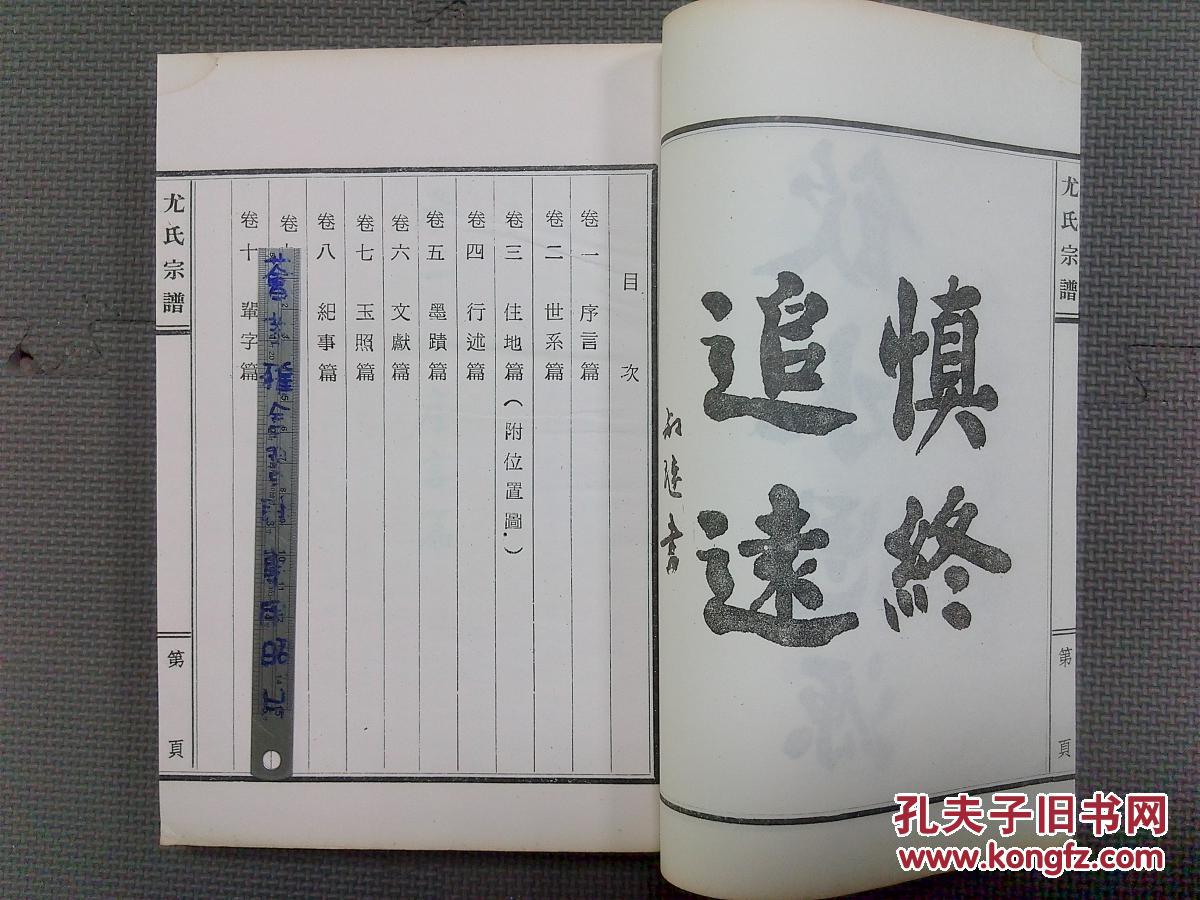 尤氏宗譜
第 頁
慎終
追遠
書
目次
卷一 序言篇
卷二 世系篇
卷三 住地篇(附位置圖.)
卷四 行述篇
卷五 墨蹟篇
卷六 文獻篇
卷七 玉照篇
卷八 紀事篇
卷
卷十 輩字篇
尤氏宗譜
第 頁
孔夫子旧书网
www.kongfz.com